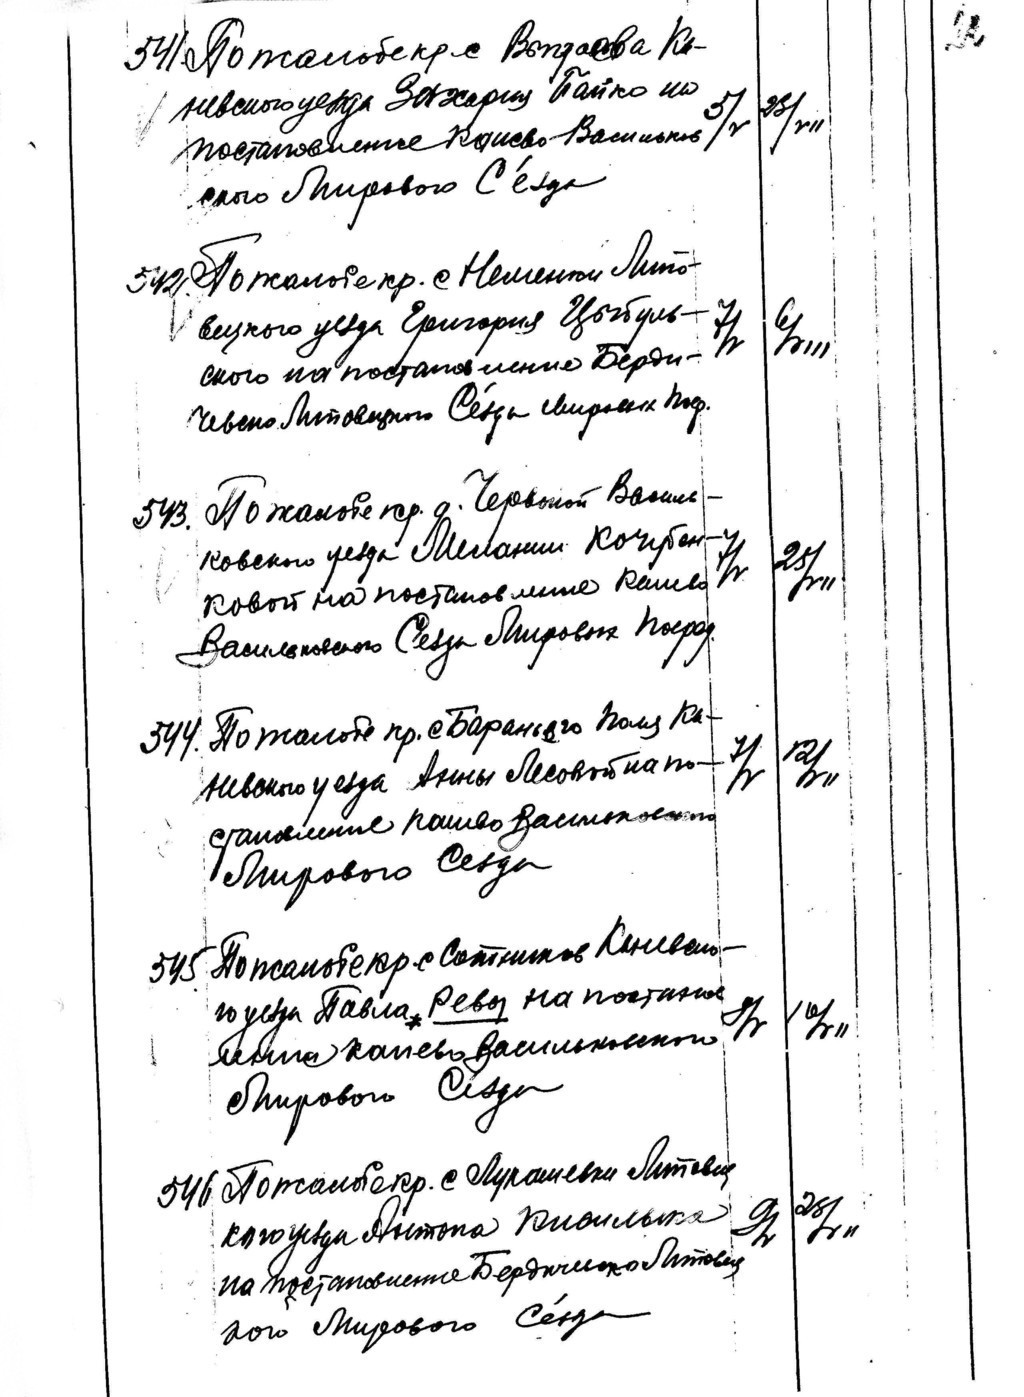 541. По жалобе кр. с Ка-
невского уезда Захария Пайко на 5/V 23/VII
постановление Канево-Васильков
ского Мирового Съезда
542. По жалобе кр. с Неменки Липо-
вецкого уезда Григория Цыбуль- 7/V 6/VIII
ского на постановление Берди-
чевско Липовецкого Съезда Мировых Поср.
543. По жалобе кр. д. Червоной Василь-
ковского уезда Мелании Кочубен- 7/V 25/VII
ковой на постановление Канево
Васильковского Съезда Мировых Посред.
544. По жалобе кр. с Бараньего Поля Ка-
невского уезда Анны Лесовой на по- 7/V 12/VII
становление Канево Васильковского
Мирового Съезда
545 По жалобе кр. с Сотников Каневско-
го уезда Павла * Ревы на постанов 8/V 10/VII
ление Канево Васильковского
Мирового Съезда
546 По жалобе кр. с Лукашевки Липовец
кого уезда Антона 9/V 25/VII
на постановление Бердичевско Липовец
кого Мирового Съезда